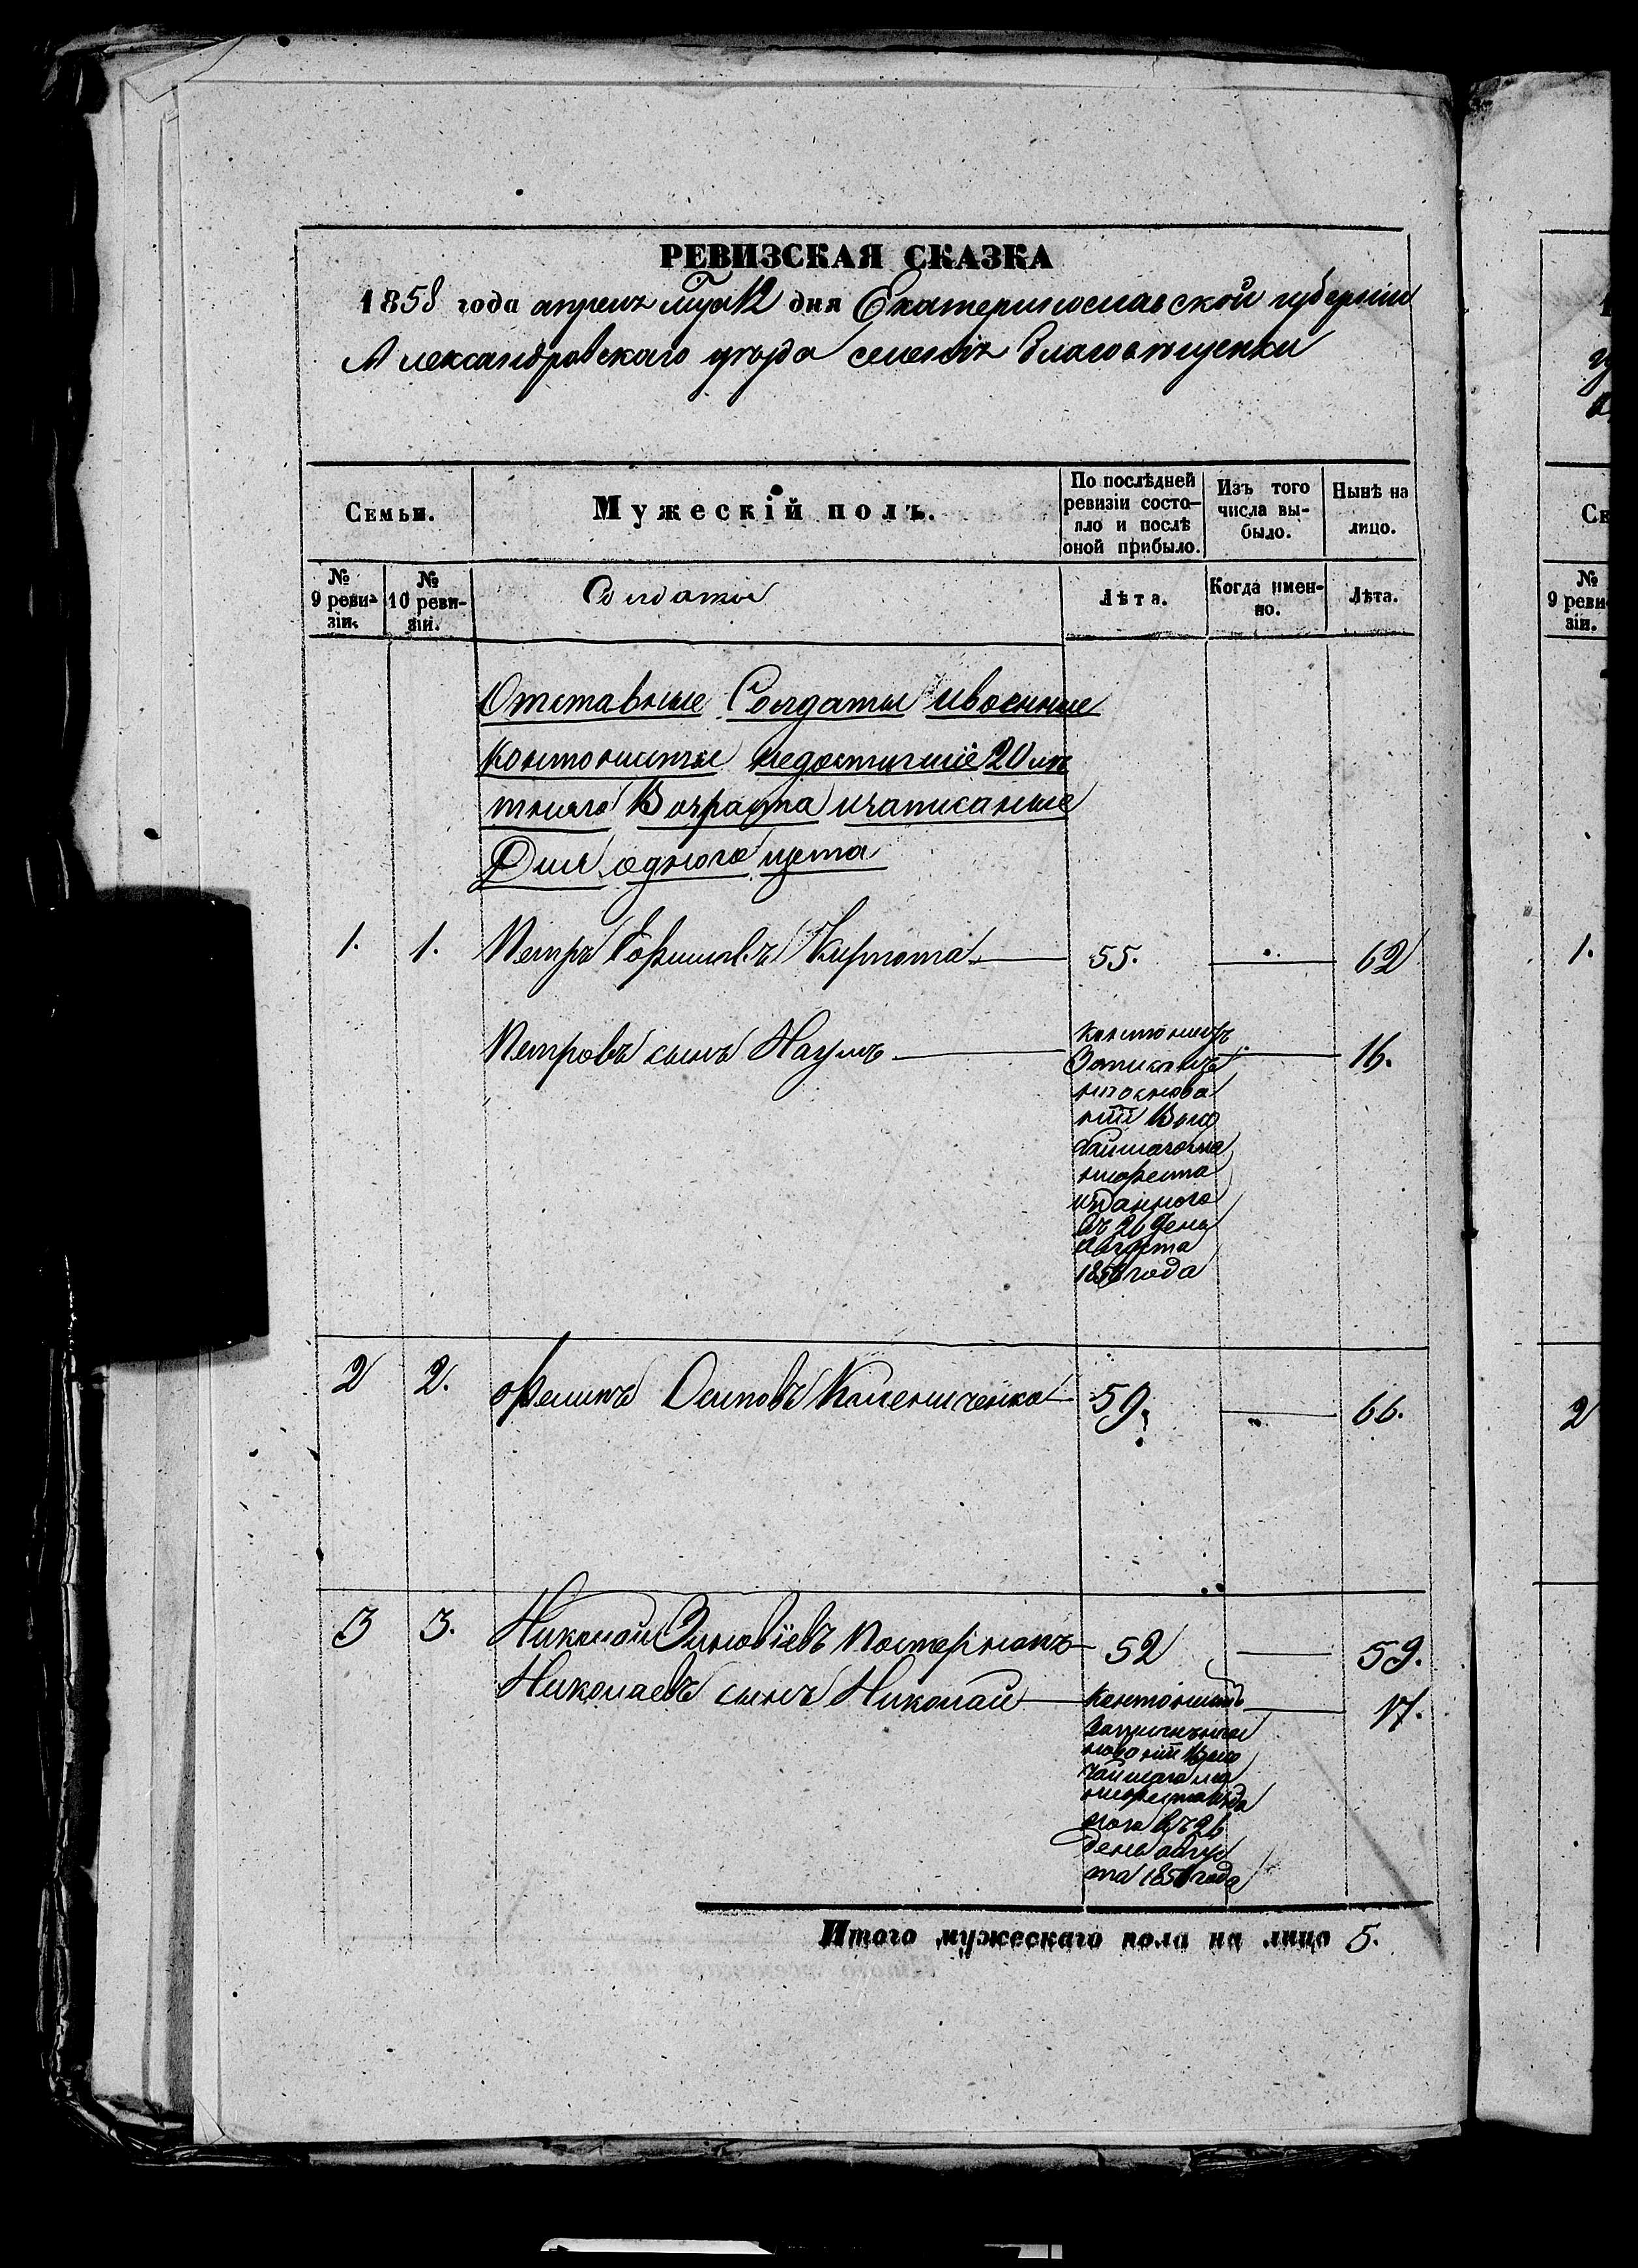 РЕВИЗСКАЯ СКАЗКА
1858 года апреля 12 дня Екатеринославской губернии
Александровскаго уезда селенія Благовещенки
Семьи.
Мужескій полъ.
По послѣдней ревизіи состояло и послѣ оной прибыло.
Изъ того числа выбыло.
Нынѣ на лицо.
№ 9 ревизіи.
№ 10 ревизіи.
Солдаты
Лѣта.
Когда именно.
Лѣта.
Отставные Солдаты ивоенные
контонисты недостигшіе 20 лѣ
тняго Возраста изаписаные
Для одного щета
1. 1. Петръ Кирпота 55. 62
Петровъ сынъ Наумъ 16.
кантонистъ
Записанъ
наоснова
ніи Высо
чайшагома
нифеста
изданного
въ 26 день
Августа
1856 года
2 2. Филипъ Осиповъ Клениченко 59. 66.
3 3. Николай Зиновіевъ Постернакъ 52 59.
Николаевъ сынъ Николай 17.
Кантонистъ
Записанънаос
нованіи Высо
чайшагома
нифестаизда
ного въ 26
день Авгус
та 1856 года
Итого мужескаго пола на лицо 5.
№ 9 реви
зіи.
1.
2